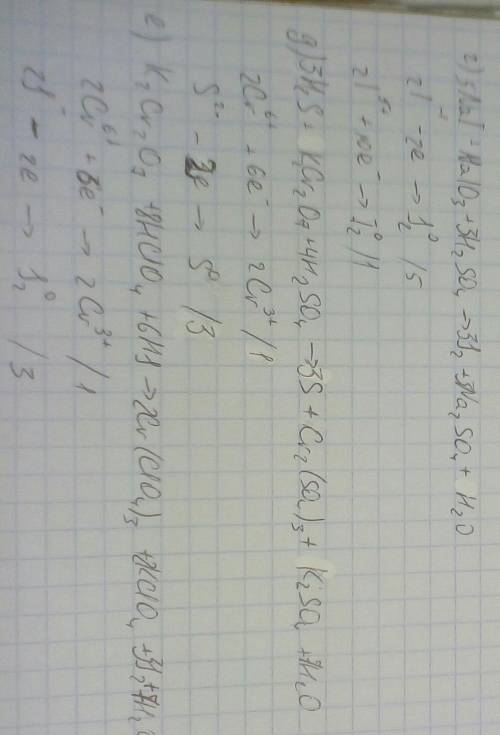 г) 5NaI + NaIO₃ + 3H₂SO₄ → 3I₂ + 3Na₂SO₄ + H₂O
2I⁻ - 2e → I₂⁰ /5
2I⁵⁺ + 10e⁻ → I₂⁰ /1
д) 3H₂S + K₂Cr₂O₇ + 4H₂SO₄ → 3S + Cr₂(SO₄)₃ + K₂SO₄ + 7H₂O
2Cr⁶⁺ + 6e⁻ → 2Cr³⁺ /1
S²⁻ - 2e → S⁰ /3
е) K₂Cr₂O₇ + 8HClO₄ + 6HI → 2Cr(ClO₄)₃ + 2KClO₄ + 3I₂ + 7H₂O
2Cr⁶⁺ + 6e⁻ → 2Cr³⁺ /1
2I⁻ - 2e → I₂⁰ /3